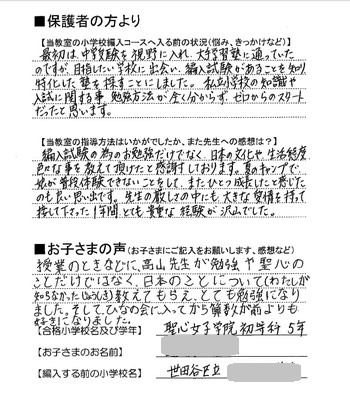 ■保護者の方より
【当教室の小学校編入コースへ入る前の状況(悩み、きっかけなど)】
最初は、中学受験を視野に入れ、大手学習塾に通っていた
のですが、目指したい学校に出会い、編入試験があることを知り
特化した塾を探すことにしました。私立小学校の知識や
入試に関する事、勉強方法が全く分からず、ゼロからのスタート
だったと思います。
【当教室の指導方法はいかがでしたか、また先生への感想は?】
編入試験の為のお勉強だけでなく、日本の文化や生活態度
色々な事を教えて頂けたと感謝しております。夏のキャンプで
娘が普段体験できないことをして、また ひとつ成長したと感じた
のも良い思い出です。先生の教えて下さる中にも、大きな愛情を持って
接して下さった1年間、とても貴重な経験が沢山でした。
■お子さまの声(お子さまにご記入をお願いします、感想など)
授業のときなどに、高山先生が勉強や聖心の
ことだけではなく、日本のことについて(わたしが
知らなかったしゅうしき)教えてもらえ、とても勉強になり
ました。そして、ひなの会に入ってから算数が前よりも
好きになりました。
【合格小学校名及び学年】 聖心女子学院初等科 5年
【お子さまのお名前】
【編入する前の小学校名】 世田谷区立